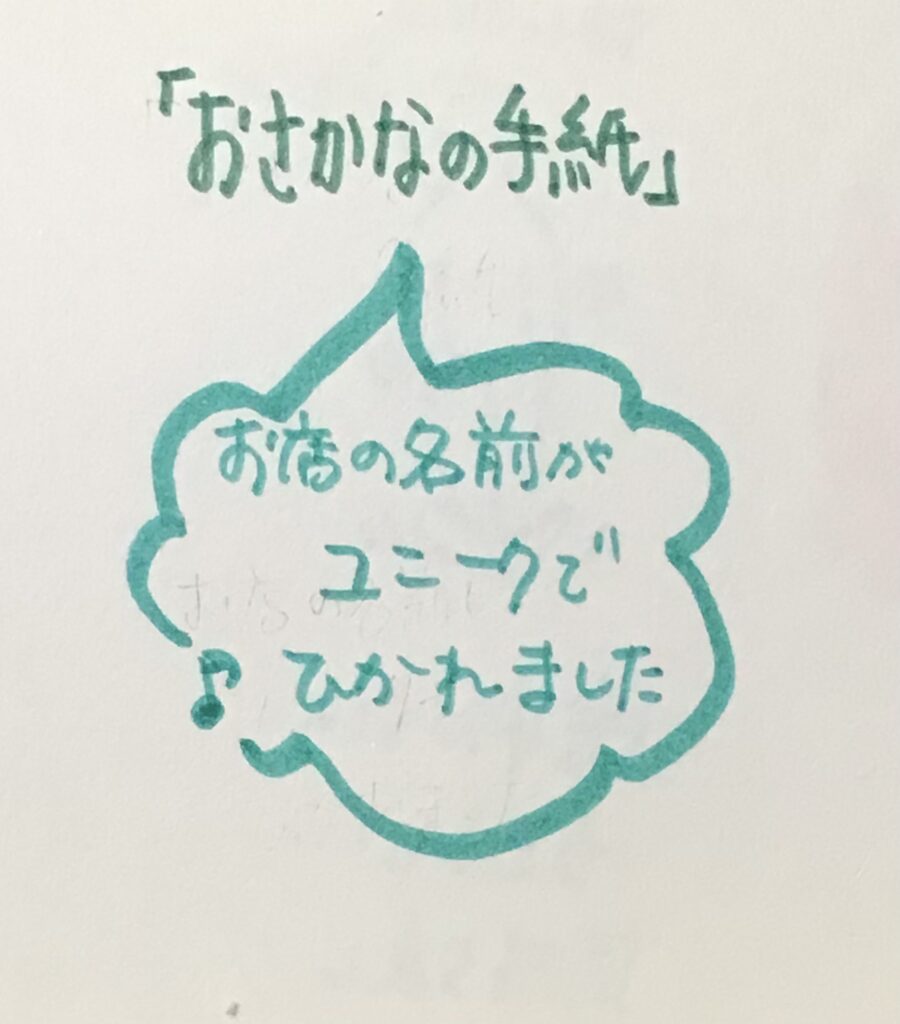 「おさかなの手紙」
お店の名前が
ユニークで
♪ ひかれました